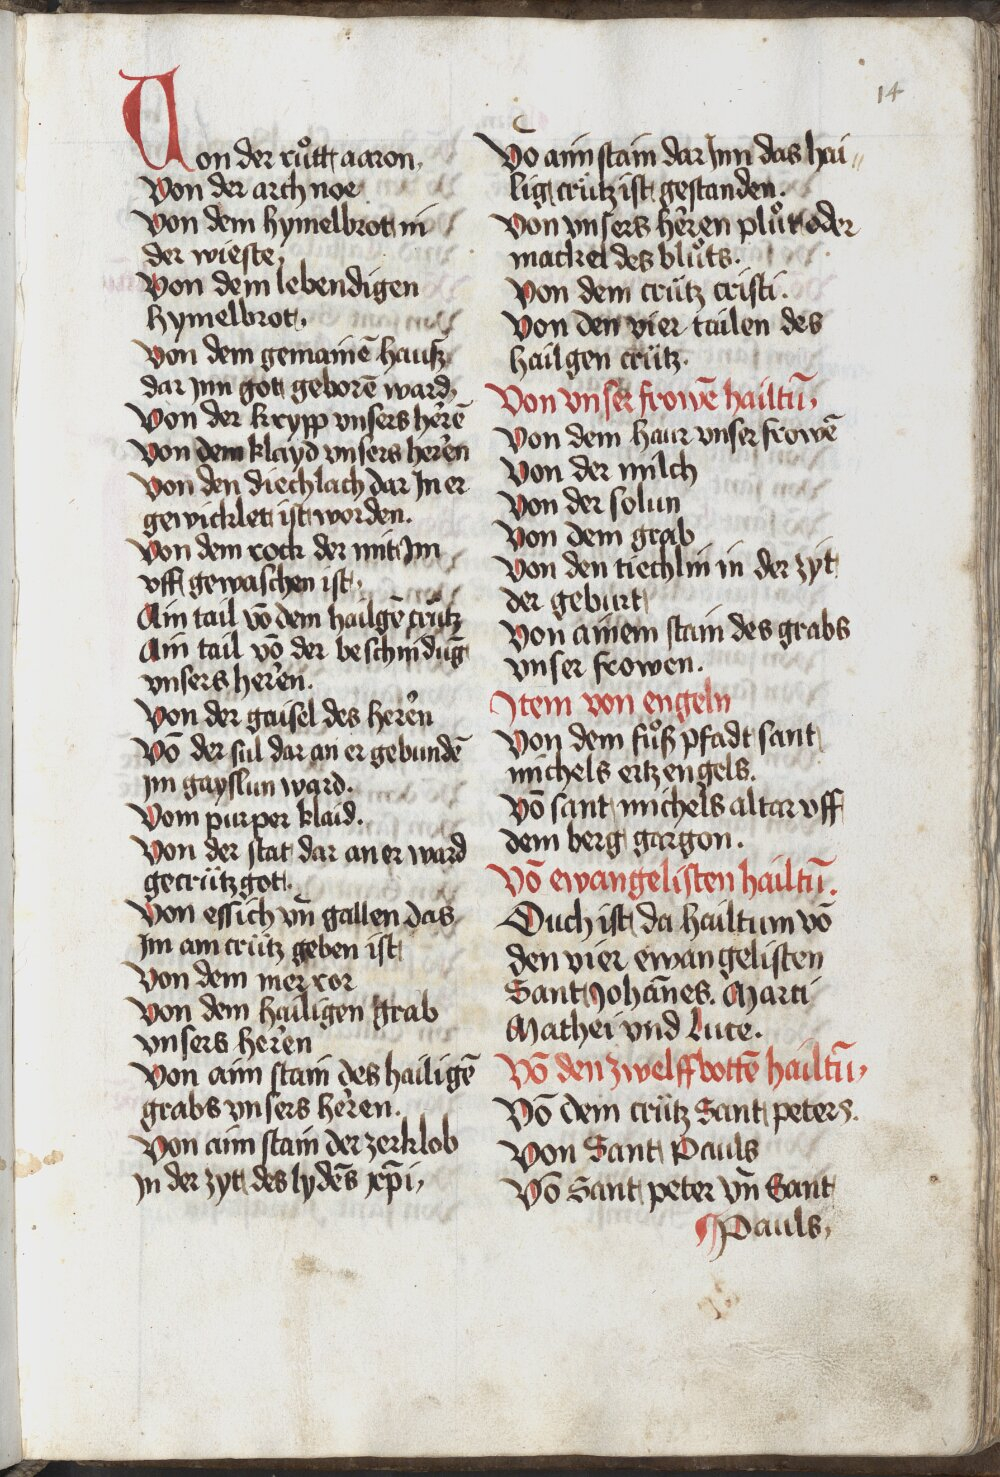 14
Von der růtt aaron,
Von der arch noe
Von dem hymelbrot in
der wieste,
Von dem lebendigen
hymelbrot,
Von dem gemainē hausz
dar Jnn got geborē ward,
Von der krypp vnsers herē
Von dem klayd vnsers heren
Von den diechlach dar Jn er
gewicklet ist worden.
Von dem rock der mit Jm
vff gewaschen ist,
Ain tail vō dem hailgē crütz
Ain tail vō der beschnidūg
vnsers heren.
Von der gaisel des heren
Vō der sul dar an er gebundē
Jm gayslun ward.
Vom purper klaid.
Von der stat dar an er ward
gecrütz got.
Von essich vn̄ gallen das
Jm am crütz geben ist
Von dem mer ror
Von dem hailigen grab
vnsers heren
Von aim stain des hailigē
grabs vnsers heren.
Von aim stain der zerklob
Jn der zyt des lydēs xp̄i,
Vo aim stain dar Jnn das hai„
lig crütz ist gestanden.
Von vnsers heren plůt oder
mackel des blůts.
Von dem crütz cristi.
Von den vier tailen des
hailgen crütz.
Von vnser frowē hailtū,
Von dem haur vnser frowē
Von der milch
Von der solun
Von dem grab
Von den tiechlin in der zyt
der geburt
Von ainem stain des grabs
vnser frowen.
Jtem von engeln
Von dem fůß pfadt sant
michels ertzengels.
Vō sant michels altar vff
dem berg gargon.
Vō ewangelisten hailtū.
Ouch ist da hailtum vō
den vier ewangelisten
Sant Johānes. Marci
Mathei vnd Luce.
Vō den zwelffbottē hailtū,
Vō dem crütz Sant peters.
Von Sant Pauls
Vō Sant peter vn̄ Sant
Pauls,